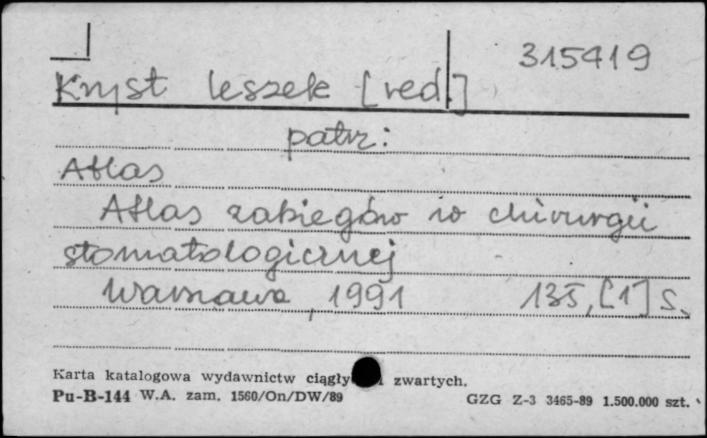 315419
Kryst Leszek [red.]
patrz:
Atlas
Atlas zabiegów w chirurgii
stomatologicznej
Warszawa, 1991 135, [1] s.
Karta katalogowa wydawnictw ciągły zwartych.
Pu-B-144 W.A. zam. 1560/On/DW/89 GZG Z-3 3465-89 1.500.000 szt.